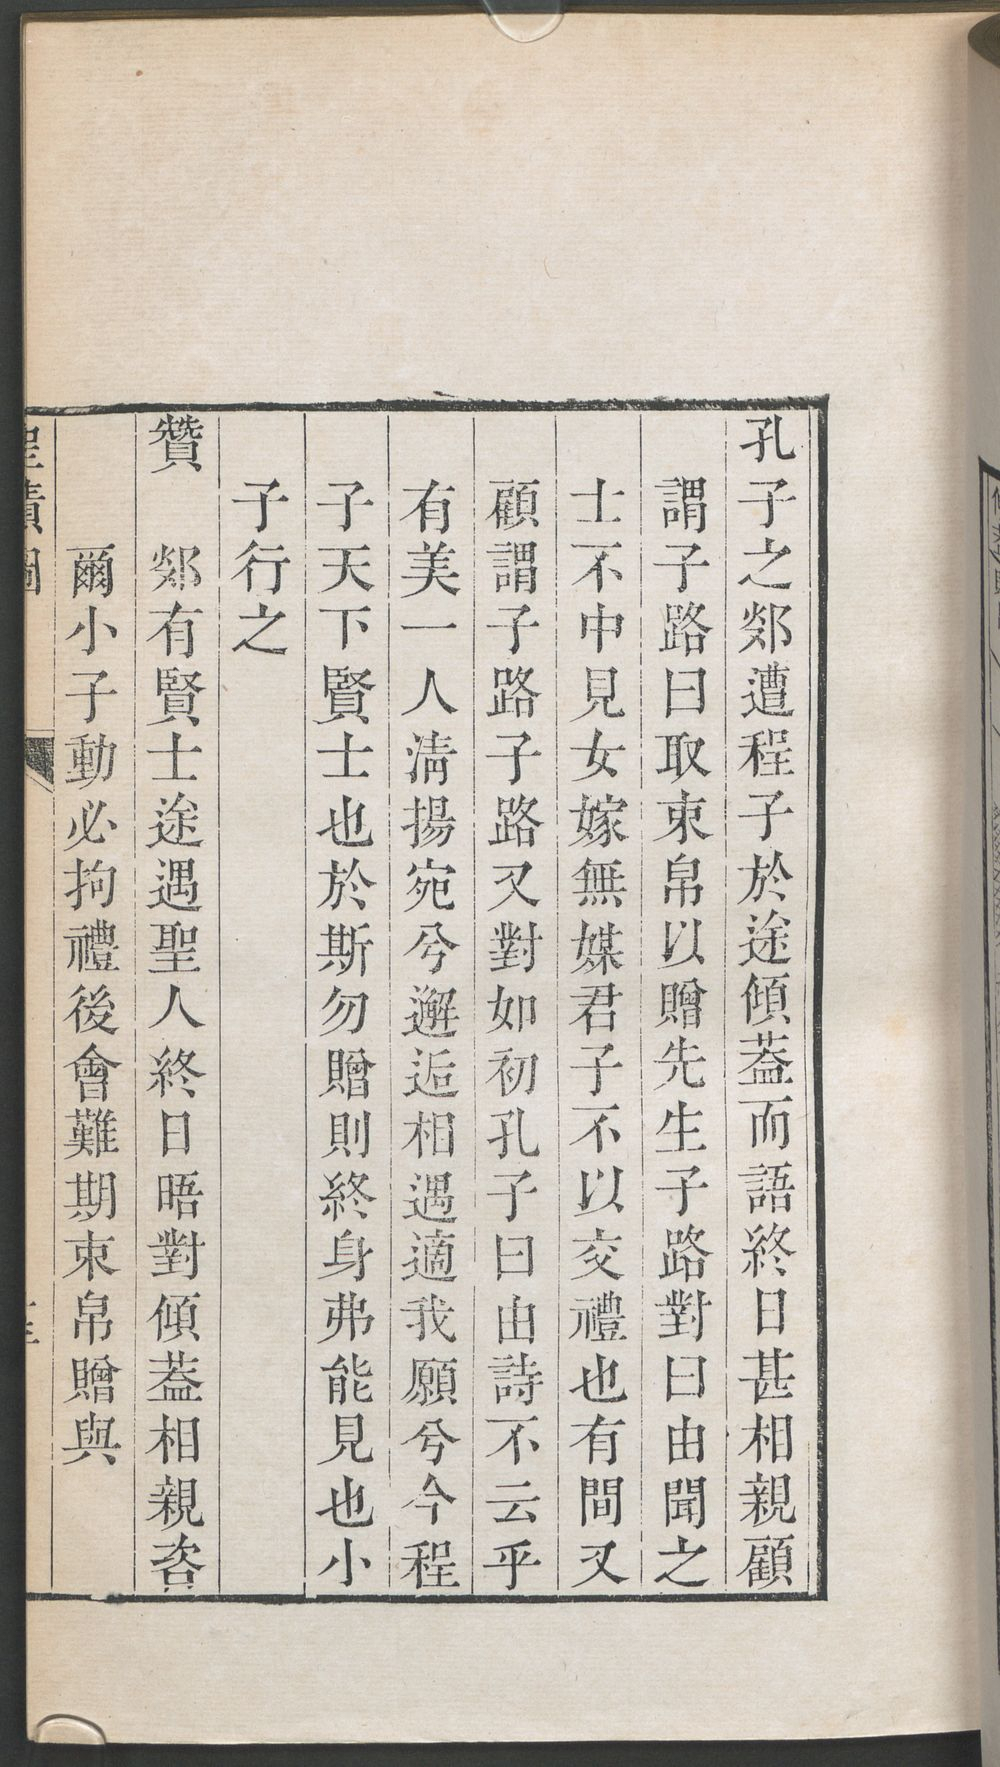 孔子之郯遭程子於途傾葢而語終日甚相親顧
謂子路曰取束帛以贈先生子路對曰由聞之
士不中見女嫁無媒君子不以交禮也有間又
顧謂子路子路又對如初孔子曰由詩不云乎
有美一人清揚宛兮邂逅相遇適我願兮今程
子天下賢士也於斯勿贈則終身弗能見也小
子行之
贊 郯有賢士途遇聖人終日晤對傾葢相親咨
爾小子動必拘禮後會難期束帛贈與
聖蹟圖